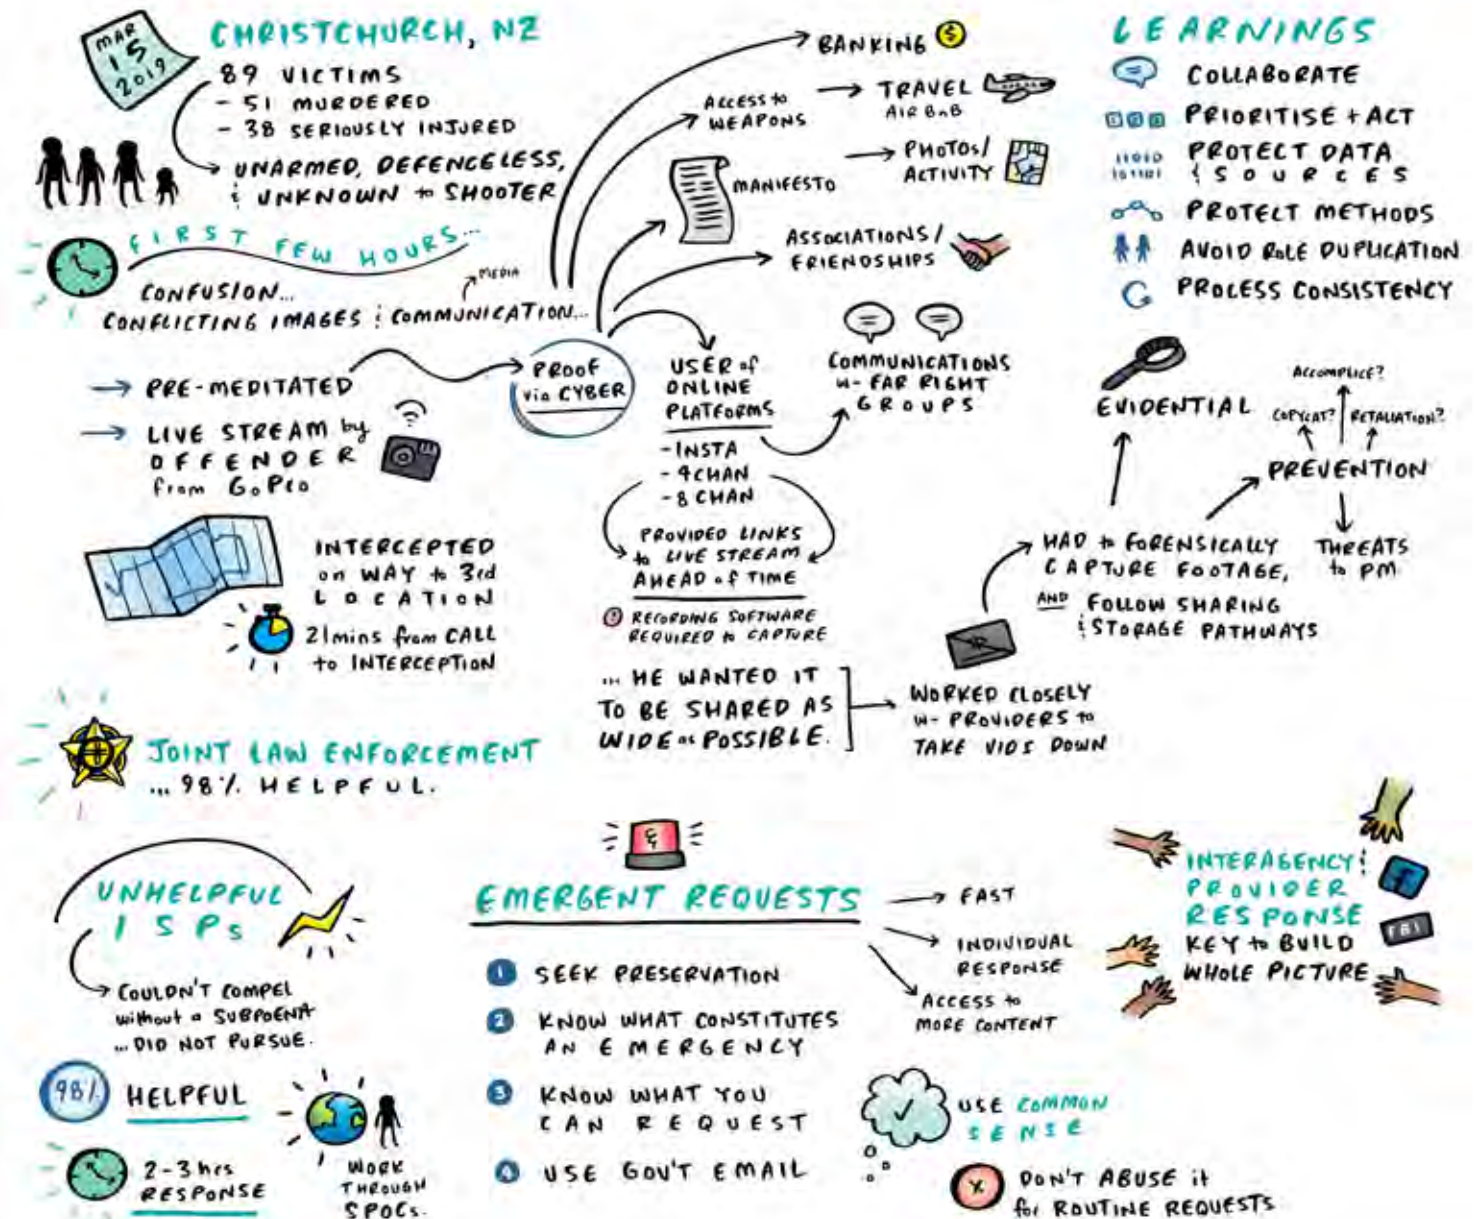 MAR
15
2019
CHRISTCHURCH, NZ
89 VICTIMS
- 51 MURDERED
- 38 SERIOUSLY INJURED
UNARMED, DEFENCELESS,
& UNKNOWN to SHOOTER
FIRST FEW HOURS...
CONFUSION...
MEDIA
CONFLICTING IMAGES & COMMUNICATION...
PRE-MEDITATED
LIVE STREAM by
OFFENDER
from GoPro
INTERCEPTED
on WAY to 3rd
LOCATION
21mins from CALL
to INTERCEPTION
JOINT LAW ENFORCEMENT
...98% HELPFUL.
PROOF
via CYBER
BANKING $
ACCESS to
WEAPONS
TRAVEL
AIR BnB
MANIFESTO
PHOTOS/
ACTIVITY
ASSOCIATIONS/
FRIENDSHIPS
USER of
ONLINE
PLATFORMS
- INSTA
- 4CHAN
- 8CHAN
COMMUNICATIONS
w- FAR RIGHT
GROUPS
PROVIDED LINKS
to LIVE STREAM
AHEAD of TIME
! RECORDING SOFTWARE
REQUIRED to CAPTURE
... HE WANTED IT
TO BE SHARED AS
WIDE as POSSIBLE.
WORKED CLOSELY
w- PROVIDERS to
TAKE VIDS DOWN
HAD to FORENSICALLY
CAPTURE FOOTAGE,
AND FOLLOW SHARING
& STORAGE PATHWAYS
EVIDENTIAL
ACCOMPLICE?
COPYCAT?
RETALIATION?
PREVENTION
THREATS
to PM
LEARNINGS
COLLABORATE
PRIORITISE + ACT
11010
101101
PROTECT DATA
& SOURCES
PROTECT METHODS
AVOID ROLE DUPLICATION
PROCESS CONSISTENCY
UNHELPFUL
ISPs
COULDN'T COMPEL
without a SUBPOENA
... DID NOT PURSUE.
98% HELPFUL
2-3 hrs
RESPONSE
WORK
THROUGH
SPOCs.
EMERGENT REQUESTS
FAST
INDIVIDUAL
RESPONSE
ACCESS to
MORE CONTENT
1 SEEK PRESERVATION
2 KNOW WHAT CONSTITUTES
AN EMERGENCY
3 KNOW WHAT YOU
CAN REQUEST
4 USE GOV'T EMAIL
INTERAGENCY &
PROVIDER
RESPONSE
KEY to BUILD
WHOLE PICTURE
f
FBI
USE COMMON
SENSE
X DON'T ABUSE it
for ROUTINE REQUESTS